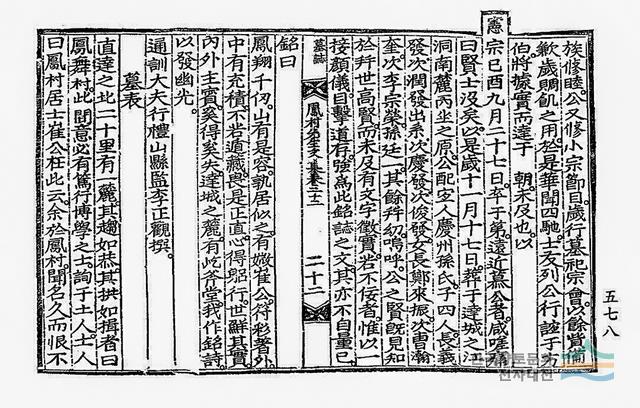 族修睦公又修小宗節目歲行墓祀宗會以餘貲備
歉歲賙飢之用於是華聞四馳士友列公行誼于方
伯將據實而達于 朝未及也以
憲宗己酉九月二十七日卒于第遠近慕公者咸嗟
曰賢士沒矣以是歲十一月十七日葬于達城之江
洞南麓丙坐之原公配室人慶州孫氏子四人長羲
發次潤發出系次慶發次俊發女長鄭來振次曺瀚
奎次李宗榮孫廷一其餘幷幼嗚呼公之賢旣見知
於幷世高賢而未及有文字徵實岩不佞者惟以一
接顏儀目擊道存強爲此銘誌之文其亦不自量已
銘曰
墓誌
鳳村先生文集卷之二十二
二十二
鳳翔千仞山有是容孰居似之有嬍崔公符彩著外
中有充積不若遁藏畏是正直心得躬行世鮮其實
內外主賓奚得奚失達城之麓有屹斧堂我作銘詩
以發幽光
通訓大夫行禮山縣監李正觀撰
墓表
直達之北二十里有一麓其趨如恭其拱如揖者曰
鳳舞村此間意必有篤行博學之士詢于土人土人
曰鳳村居士崔公在此云余於鳳村聞名久而恨不
五七八